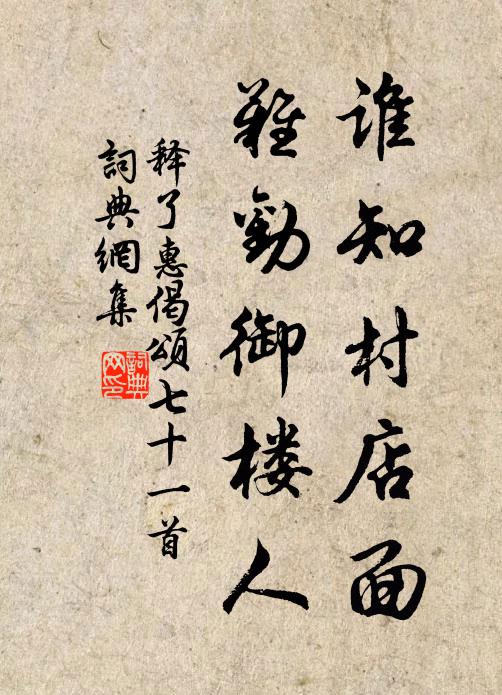 谁知村店面
难劝御楼人
释了惠偈颂七十一首
詞典網集
詞典
网印